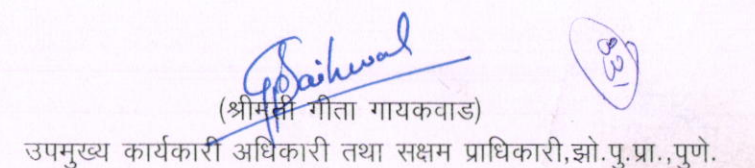 (श्रीमती गीता गायकवाड)
उपमुख्य कार्यकारी अधिकारी तथा सक्षम प्राधिकारी,झो.पु.प्रा.,पुणे.